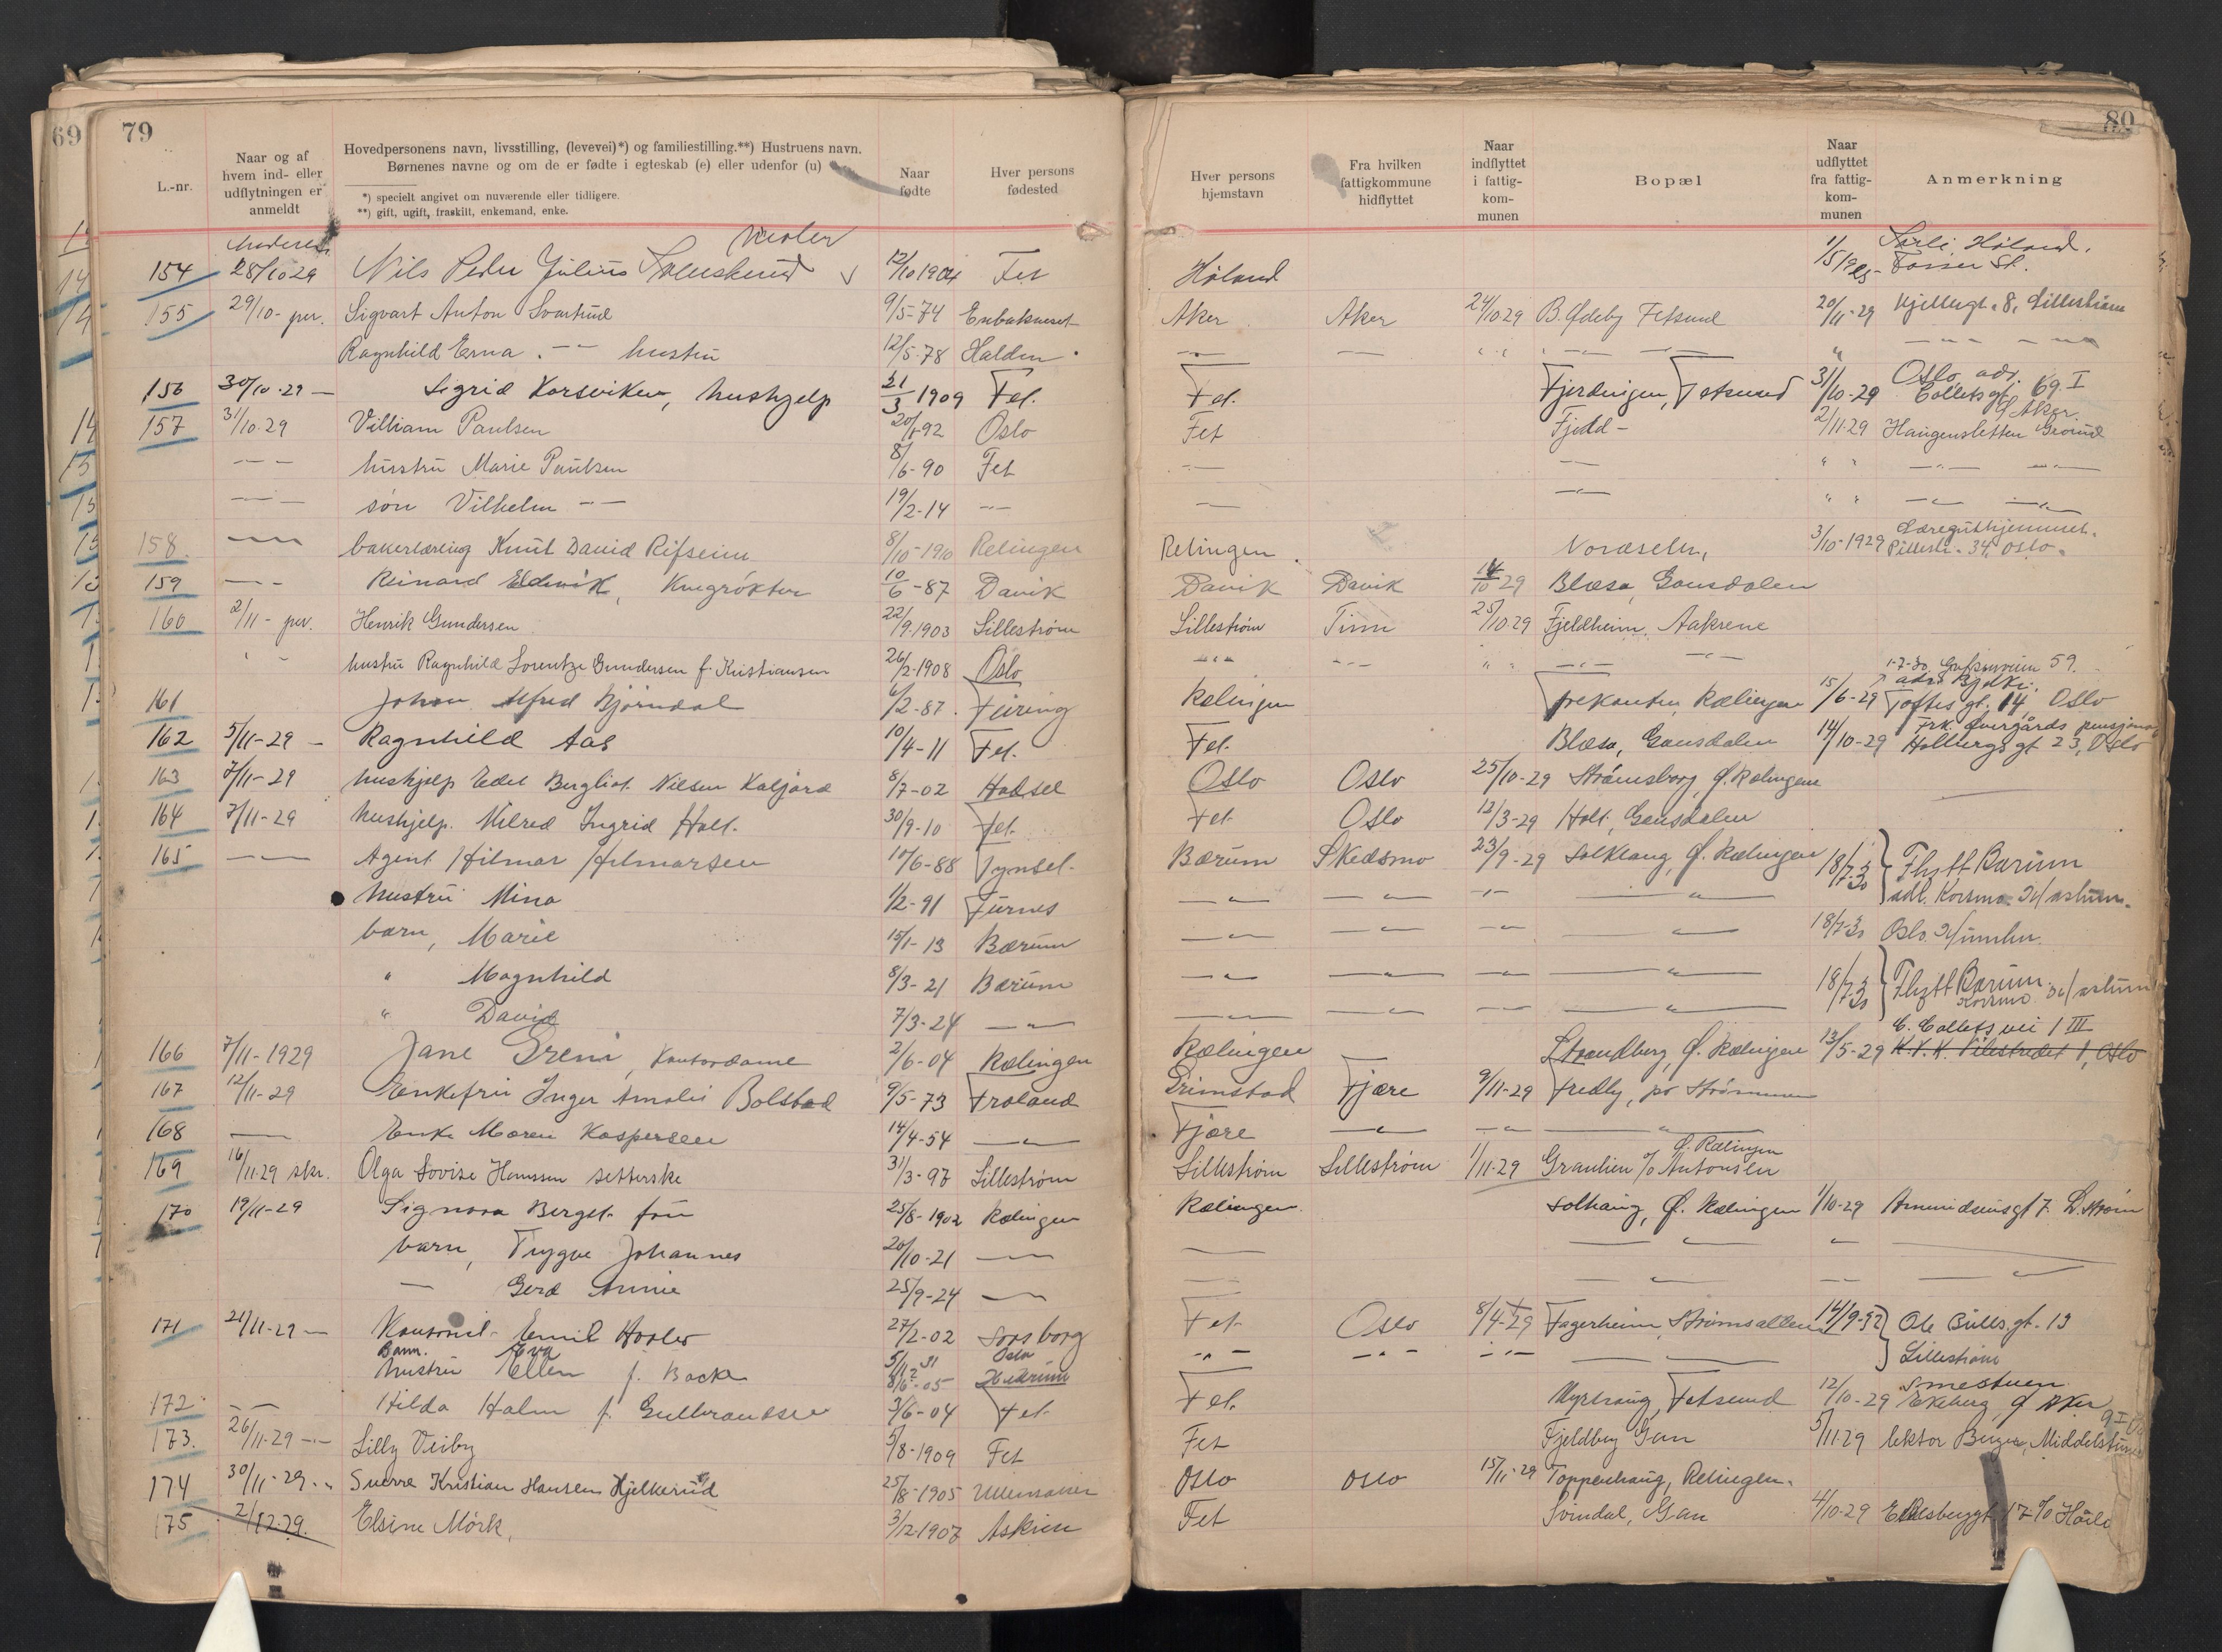 69 79
L.-nr.
Naar og af hvem ind- eller udflytningen er anmeldt
Hovedpersonens navn, livsstilling, (levevei)*) og familiestilling.**) Hustruens navn.
Børnenes navne og om de er fødte i egteskab (e) eller udenfor (u)
*) specielt angivet om nuværende eller tidligere.
**) gift, ugift, fraskilt, enkemand, enke.
Naar fødte
Hver persons fødested
80
Hver persons hjemstavn
Fra hvilken fattigkommune hidflyttet
Naar indflyttet i fattig-kom-munen
Bopæl
Naar udflyttet fra fattig-kom-munen
Anmerkning
154 28/10 29 Nils Peder Julius 12/10 1904 Fet Høland
155 29/10- per. Sigvart Anton Svartrud 9/5-74 Enbakneset Aker Aker 24/10 29 B. Ødeby Fetsund 20/11-29 Kjellergt. 8, Lillestrøm
Ragnhild Erna -"- hustru 12/5-78 Halden -"- -"- " " -"- -"- " -"- -"-
156 30/10-29 - Sigrid Korsviken, hushjelp 21/3 1909 Fet. Fet. Fjerdingen, Fetsund 31/10-29 Oslo, adr. Colletsgt. 69 I
157 31/10-29 Villiam Paulsen 20/1-92 Oslo Fet Fjeld- 2/11-29 Haugensletten Grorud Ø. Aker.
-"- hustru Marie Paulsen 8/6-90 Fet -"- -"- " " -"- -"-
-"- søn Vilhelm -"- 19/2-14 -"- -"- -"- " " -"- -"-
158. -"- bakerlæreing Knut David Rifseim 8/10-1910 Relingen Relingen. 3/10-1929 Læreguthjemmet. Pilestr. 34, Oslo.
159 -"- Reinard 10/6-87 Davik Davik Davik 14/10 29 Blæsa, Gansdalen
160 2/11- per. Henrik Gundersen 22/9-1903 Lillestrøm Lillestrøm Tinn 25/10-29 Fjeldheim, Aakrene
" - hustru Ragnhild Lorentze Gundersen f. Kristiansen 26/2-1908 Oslo -"- -"- " " -"- -"-
161 Johan Alfred Bjørndal 6/2-87. Feiring Rælingen Trekanten, Rælingen 15/6-29 Toftes gt. 14, Oslo
162 5/11-29 - Ragnhild Aas 10/4-11 Fet. Fet. Blæsa, Gansdalen 14/10-29 frk. Overgårds pensjonat Holbergs gt 23, Oslo
163 7/11-29 hushjelp Edel Bergliot Nilsen Kaljord 8/7-02 Hadsel Oslo Oslo 25/10-29 Strømsborg, Ø. Rælingen
164 7/11-29 hushjelp. Milred Ingrid Holt. 30/9-10 Fet. Fet. Oslo 12/3-29 Holt, Gansdalen
165 -"- Agent Hilmar Hilmarsen 17/6-88 Tynset. Bærum Skedsmo 23/9-29 Solhaug, Ø. Rælingen 18/7-30 Flytt Bærum
hustru Mina 1/2-91 Furnes -"- -"- -"- -"-
barn, Marie 15/1-13 Bærum -"- -"- -"- -"- 18/7-30 Oslo
" Magnhild 8/3-21 Bærum -"- -"- -"- -"- 18/7-30 Flytt Bærum
" David 7/3-24 -"- -"- -"- -"- -"-
166 7/11-1929 Jane Greni, Kontordame 2/6-04 Rælingen Rælingen Strandberg, Ø. Rælingen 13/5-29 C. Collets vei 1 III
K.F.K. Pilestredet 1, Oslo
167 12/11-29 Enkefru Inger Amalie Bolstad 9/5-73 Froland Grimstad Fjære 9/11-29 Fredly, pr Strømmen
168 -"- Enke Maren Kaspersen 14/4-54 -"- Fjære -"- -"- -"-
169 16/11-29 skr. Olga Lovise Hanssen setterske 31/3-97 Lillestrøm Lillestrøm Lillestrøm 1/11-29 Granlien c/o Antonsen Ø. Rælingen
170 19/11-29 Signora Bergst. fru 25/8-1902 Rælingen Rælingen. Solhaug, Ø. Rælingen 1/10-29 Amundsensgt 7. L.strøm
barn, Trygve Johannes 20/10-21 -"- -"- -"- -"-
- Gerd Annie 25/9-24 -"- -"- -"- -"-
171 21/11-29 - Emil 27/2-02 Sarpsborg Fet. Oslo 8/4-29 Fagerheim, Strømsalleen 14/9-32 Ole Bulls gt. 13
Barn. Eva 5/11 31 Oslo -"- -"- -"- -"- Lillestrøm
hustru Ellen f. Backe 8/6-05
172. -"- Hilda Holm f. Gulbrandsen 3/6-04 Fet. Fet. Myrhaug, Fetsund 12/10-29 Smestuen Ekeberg, Ø Aker
173. 26/11-29 -"- Lilly Veiby 5/8-1909 Fet Fet Fjeldberg Gan 5/11-29 lektor Berger, Middelthuns
174 30/11-29 -"- Sverre Kristian Hansen Hjelkerud 25/8-1905 Ullensaker Oslo Oslo 15/11-29 Toppenhaug, Relingen.
175 2/12-29. Elsine Mörk, 3/12-1907 Askim Fet Svindal, Gan 4/10-29